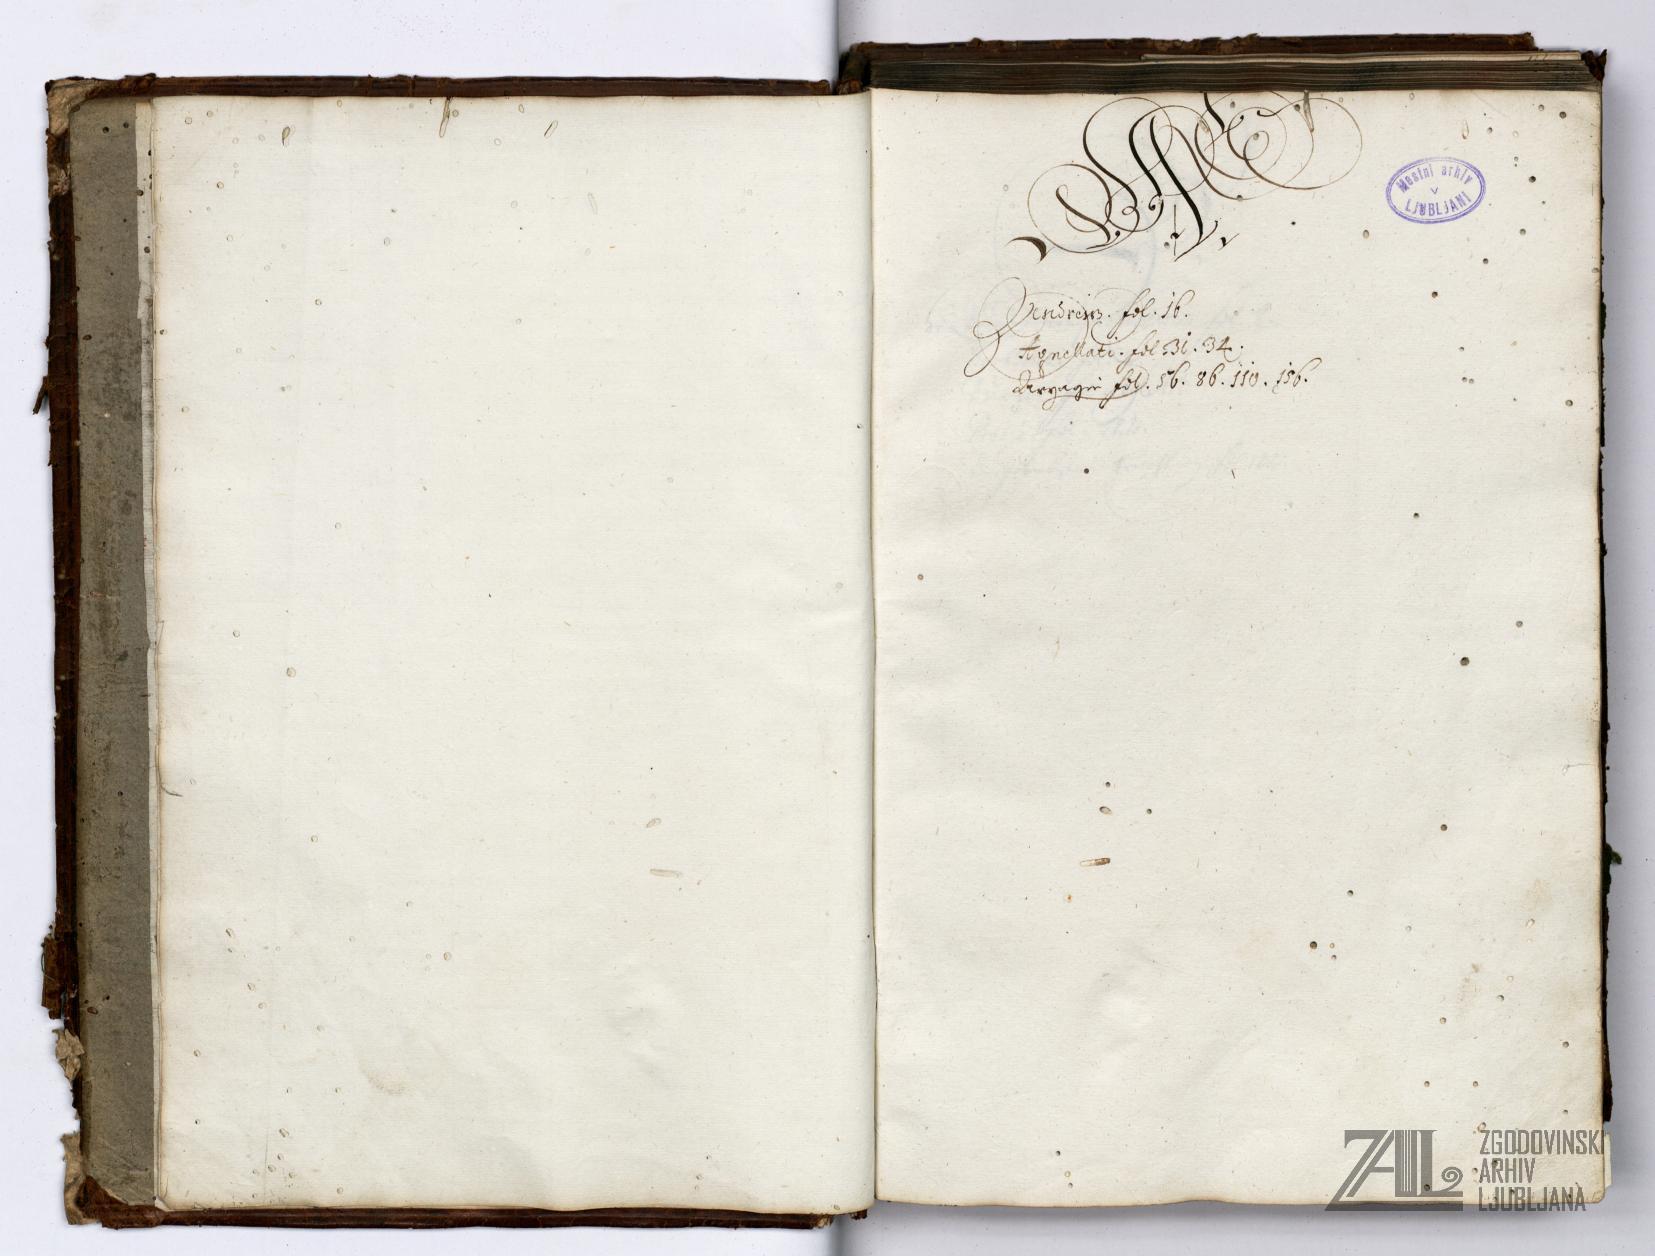 A
Mestni arhiv
v
LJUBLJANI
fol. 16.
Agnellati. fol 31. 34.
fol. 56. 86. 110. 156.
ZAL ZGODOVINSKI
ARHIV
LJUBLJANA